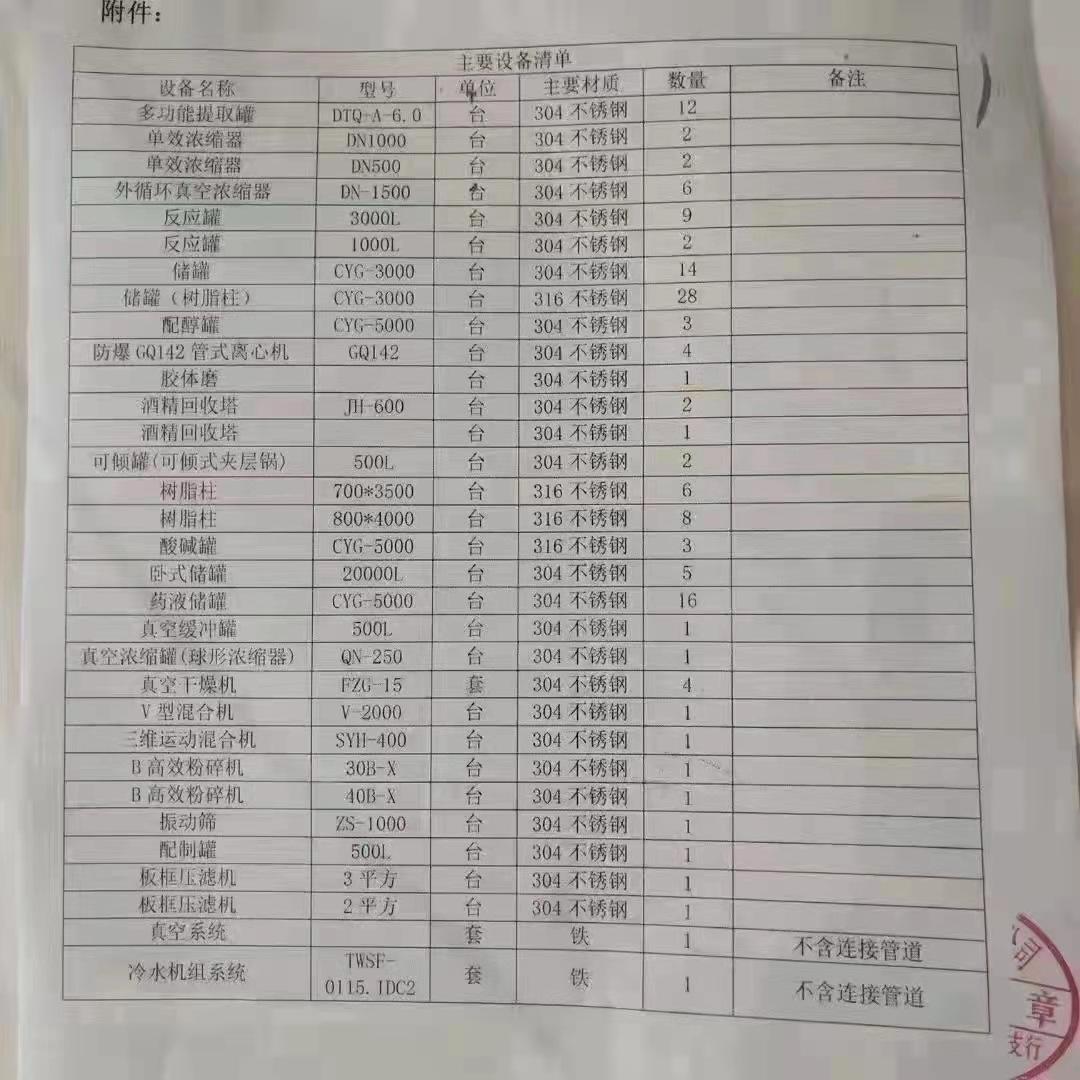 附件：
主要设备清单
设备名称 型号 单位 主要材质 数量 备注
多功能提取罐 DTQ-A-6.0 台 304 不锈钢 12
单效浓缩器 DN1000 台 304 不锈钢 2
单效浓缩器 DN500 台 304 不锈钢 2
外循环真空浓缩器 DN-1500 台 304 不锈钢 6
反应罐 3000L 台 304 不锈钢 9
反应罐 1000L 台 304 不锈钢 2
储罐 CYG-3000 台 304 不锈钢 14
储罐（树脂柱） CYG-3000 台 316 不锈钢 28
配醇罐 CYG-5000 台 304 不锈钢 3
防爆 GQ142 管式离心机 GQ142 台 304 不锈钢 4
胶体磨 台 304 不锈钢 1
酒精回收塔 JH-600 台 304 不锈钢 2
酒精回收塔 台 304 不锈钢 1
可倾罐(可倾式夹层锅) 500L 台 304 不锈钢 2
树脂柱 700*3500 台 316 不锈钢 6
树脂柱 800*4000 台 316 不锈钢 8
酸碱罐 CYG-5000 台 316 不锈钢 3
卧式储罐 20000L 台 304 不锈钢 5
药液储罐 CYG-5000 台 304 不锈钢 16
真空缓冲罐 500L 台 304 不锈钢 1
真空浓缩罐(球形浓缩器) QN-250 台 304 不锈钢 1
真空干燥机 FZG-15 套 304 不锈钢 4
V 型混合机 V-2000 台 304 不锈钢 1
三维运动混合机 SYH-400 台 304 不锈钢 1
B 高效粉碎机 30B-X 台 304 不锈钢 1
B 高效粉碎机 40B-X 台 304 不锈钢 1
振动筛 ZS-1000 台 304 不锈钢 1
配制罐 500L 台 304 不锈钢 1
板框压滤机 3 平方 台 304 不锈钢 1
板框压滤机 2 平方 台 304 不锈钢 1
真空系统 套 铁 1 不含连接管道
冷水机组系统 TWSF-
0115.1DC2 套 铁 1 不含连接管道
司
章
支行